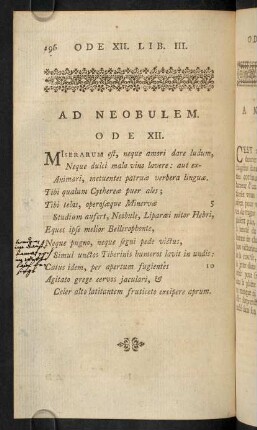 196 ODE XII. LIB. III.
AD NEOBULEM.
ODE XII.
MISERARUM est, neque amori dare ludum,
Neque dulci mala vino lavere: aut ex-
Animari, metuentes patruæ verbera linguæ.
Tibi qualum Cythereæ puer ales;
Tibi telas, operosæque Minervæ 5
Studium aufert, Neobule, Liparæi nitor Hebri,
Eques ipso melior Bellerophonte,
Neque pugno, neque segni pede victus,
Simul unctos Tiberinis humeros lavit in undis:
Catus idem, per apertum fugientes 10
Agitato grege cervos jaculari, &
Celer alto latitantem fruticeto excipere aprum.